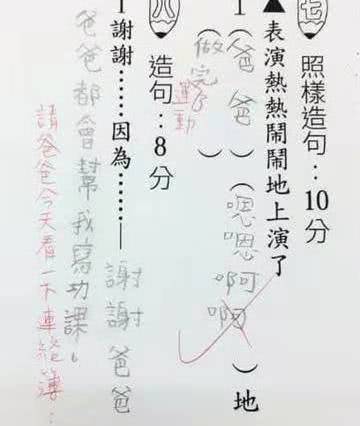 七 照樣造句：10分
▲表演熱熱鬧鬧地上演了
1（爸爸）（嗯嗯啊啊）地
（做完了）
運動
八 造句：8分
1謝謝……因為……—謝謝爸爸
爸爸都會幫我寫功課。
請爸爸今天看一下連絡簿：